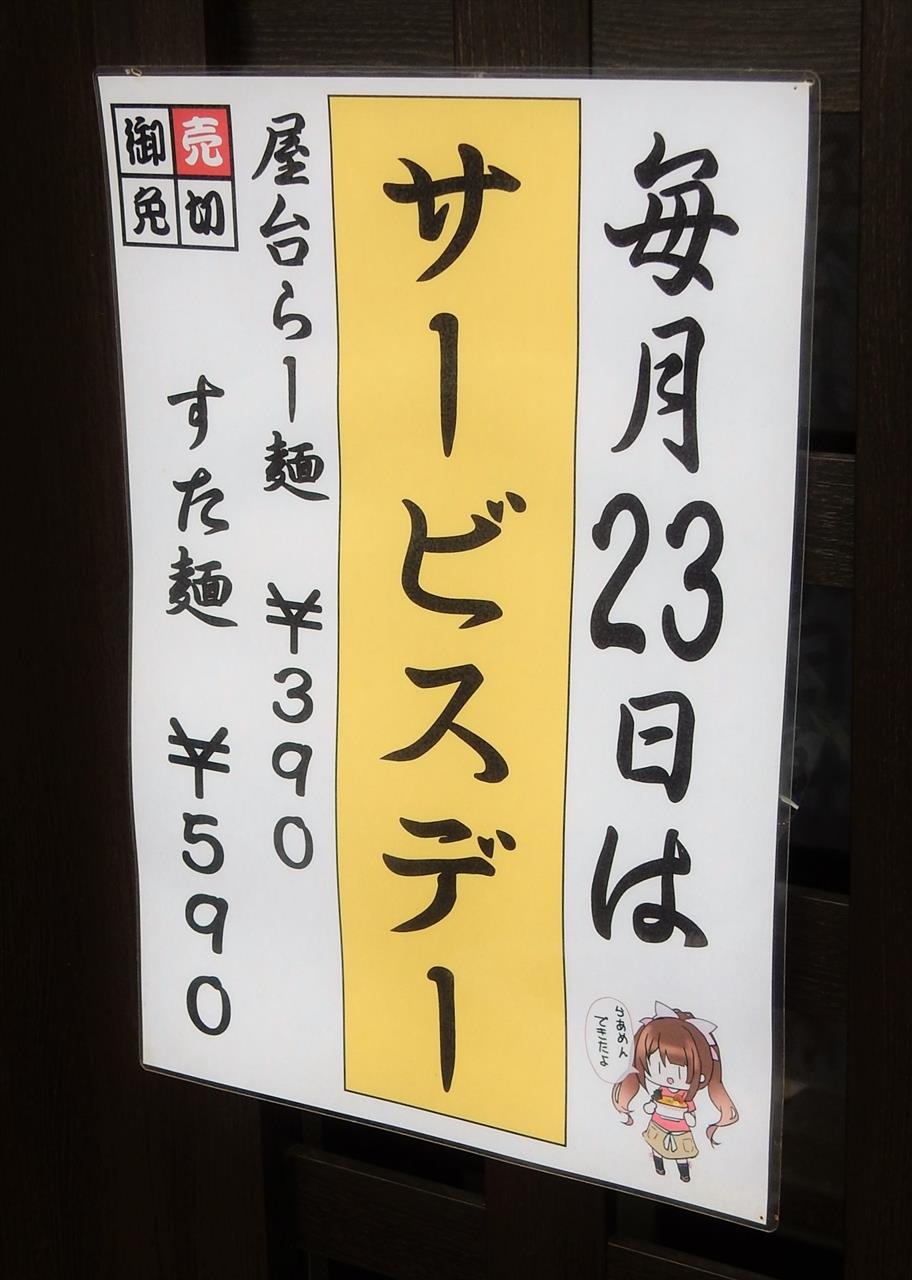 毎月23日は
サービスデー
屋台らー麺 ¥390
すた麺 ¥590
売切
御免
らあめん
できたよ